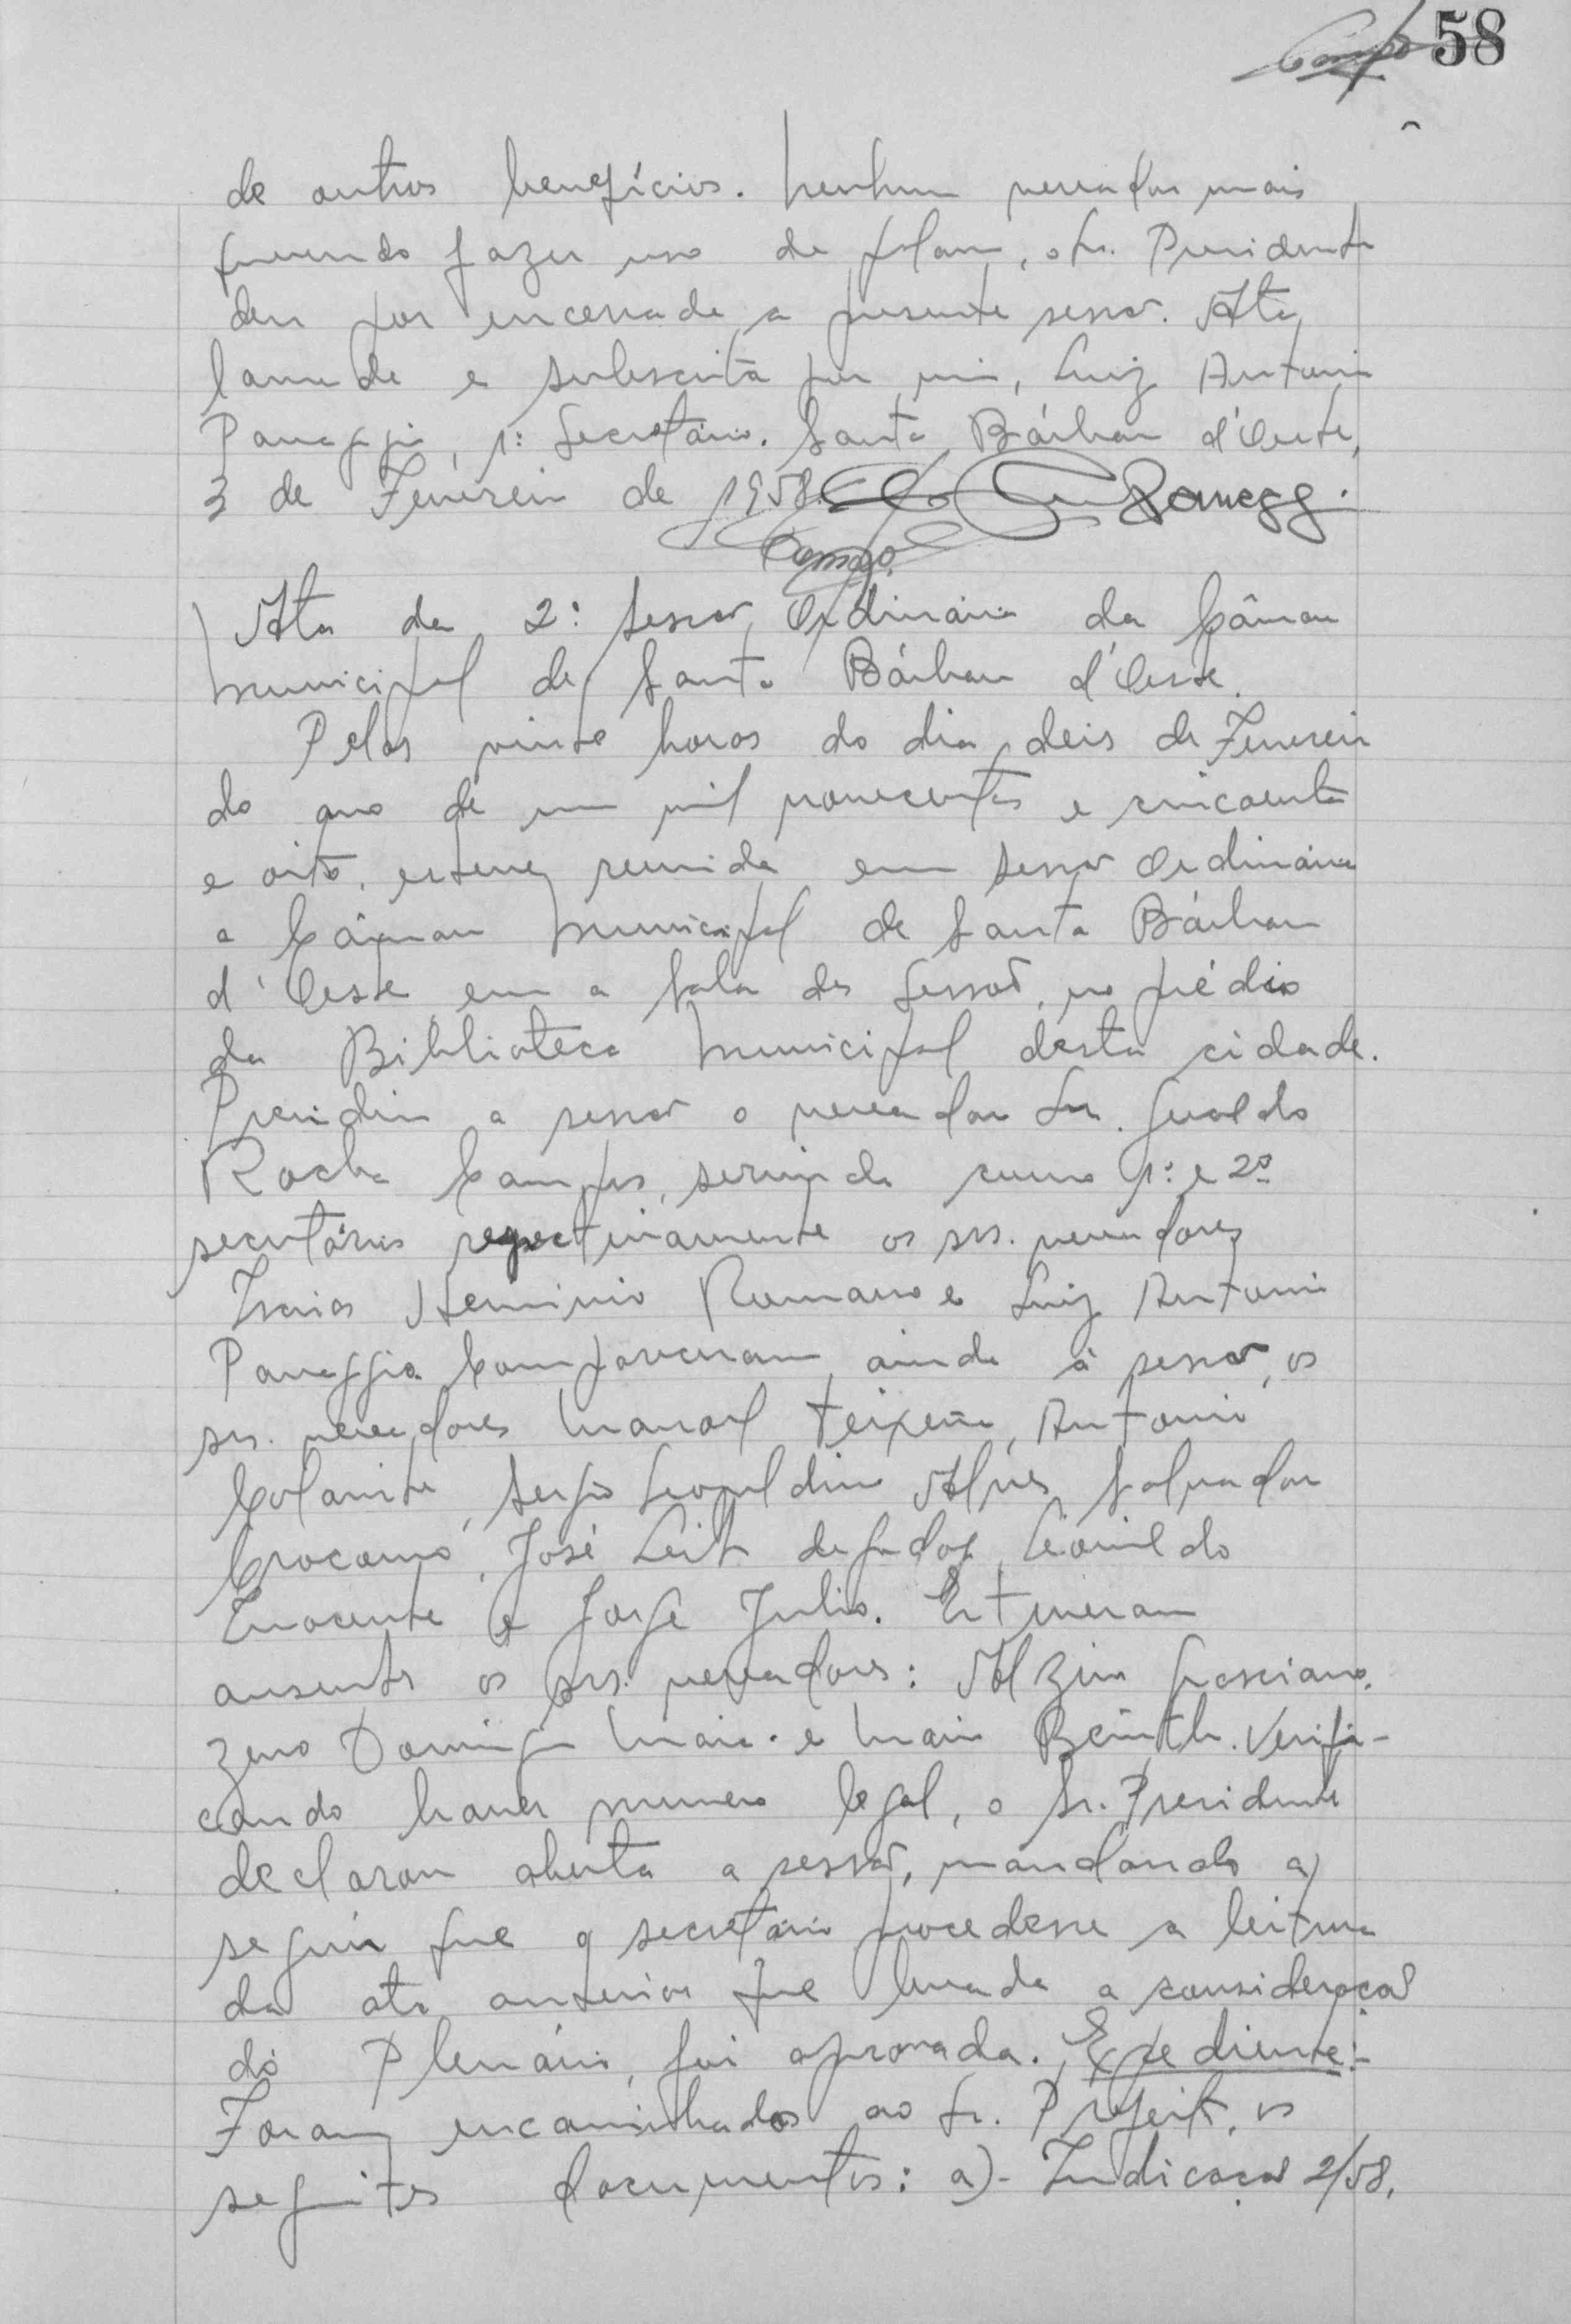 Campos 58
de outros benefícios. Nenhum vereador mais
querendo fazer uso da palavra, o Sr. Presidente
deu por encerrada a presente sessão. Ata
lavrada e subscrita por mim, Luiz Antonio
Panaggio, 1º Secretário. Santa Bárbara d'Oeste,
3 de Fevereiro de 1958.
Campos.
Ata da 2ª Sessão Ordinária da Câmara
Municipal de Santa Bárbara d'Oeste.
Pelas vinte horas do dia de Fevereiro
do ano de um mil novecentos e cincoenta
e oito, esteve reunida em sessão Ordinária
a Câmara Municipal de Santa Bárbara
d'Oeste em a Sala das Sessões, no prédio
da Biblioteca Municipal desta cidade.
Presidiu a sessão o vereador Sr. Geraldo
Rocha Campos, servindo como 1º e 2º
secretários respectivamente os srs. vereadores
Isaias Herminio Romano e Luiz Antonio
Panaggio. Compareceram ainda à sessão, os
srs. vereadores Manoel Teixeira, Antonio
Sergio Leopoldino Alves, Salvador
José Leite de
Inocente e Jorge Julio. Estiveram
ausentes os srs. vereadores:
Domingos Maia e Verifi-
cando haver numero legal, o Sr. Presidente
declarou aberta a sessão, mandando a
seguir que o secretário procedesse a leitura
da ata anterior que levada a consideração
do Plenário, foi aprovada. Expediente:-
Foram encaminhados ao Sr. Prefeito, os
seguites documentos: a)- Indicação 2/58,